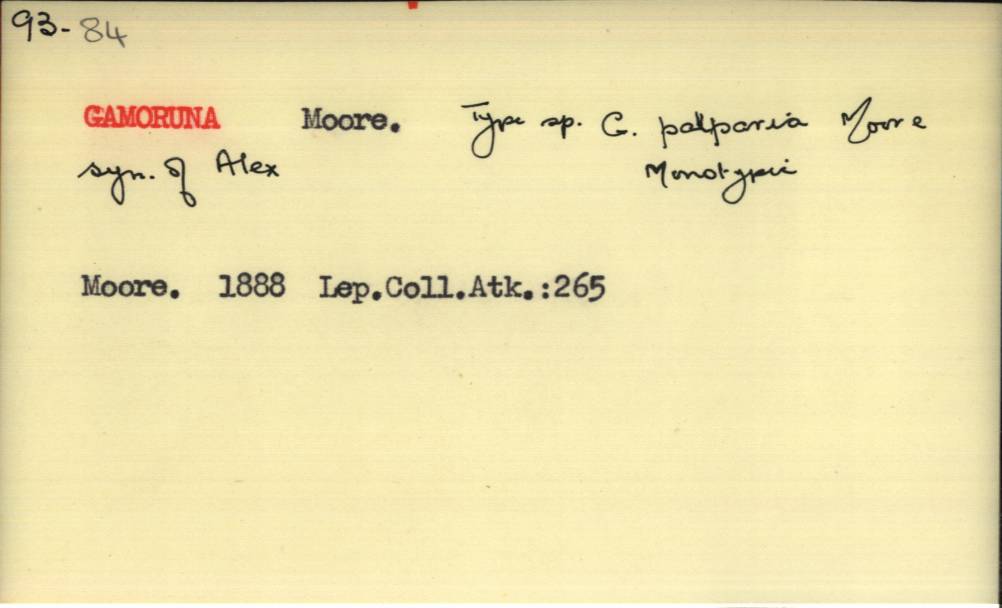 93-84
GAMORUNA Moore. Type sp. G. palparia Moore
syn. of Alex Monotypic
Moore. 1888 Lep.Coll.Atk.:265